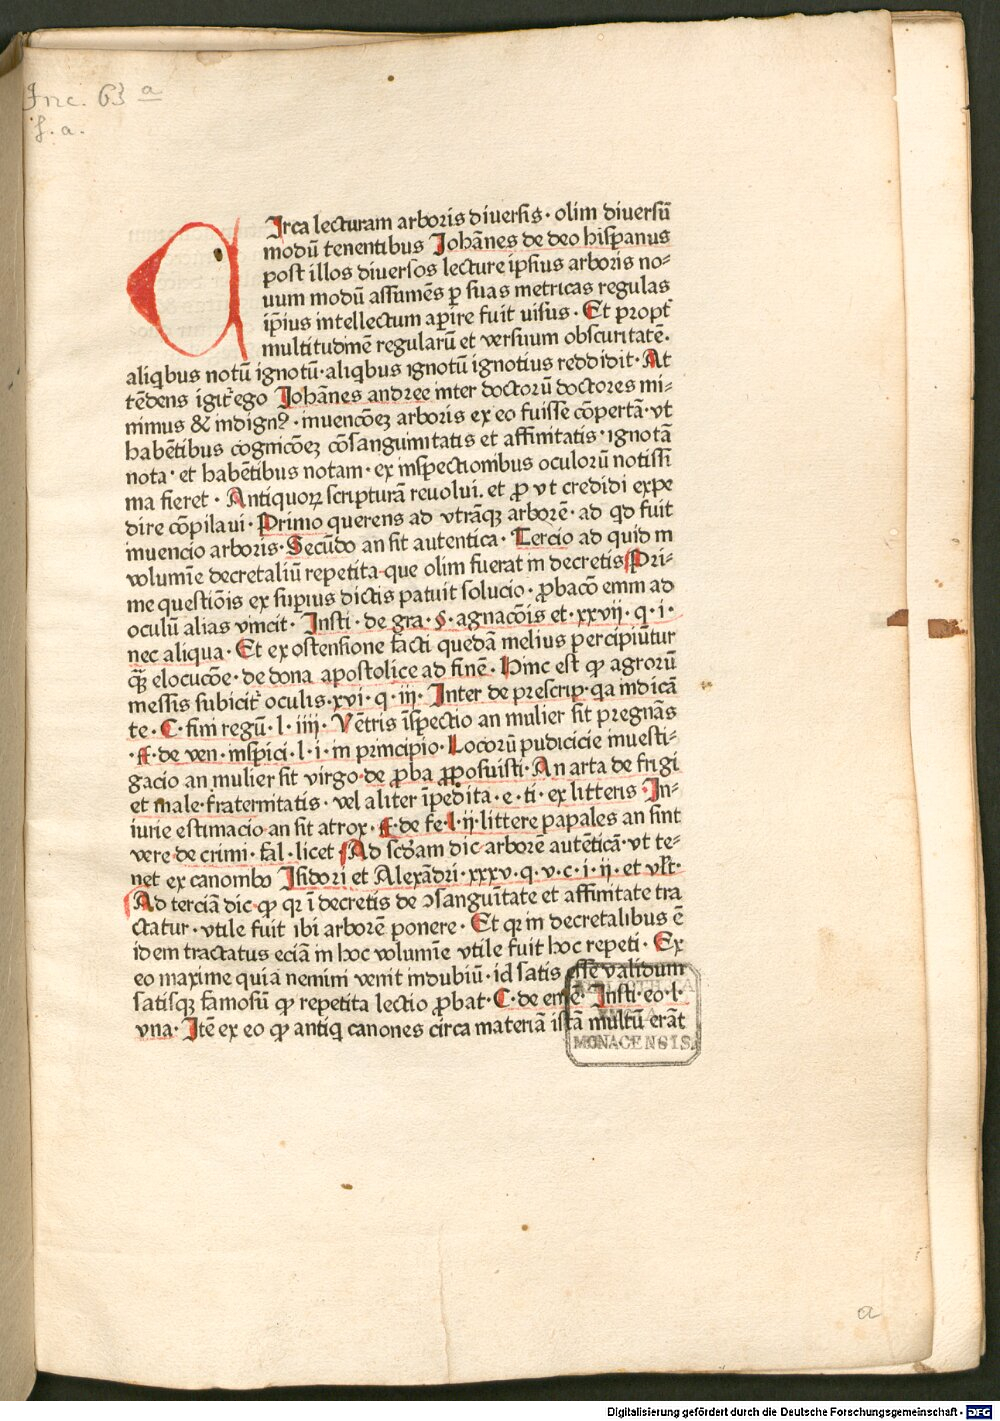 Inc. 63 a
s. a.
CIrca lecturam arboris diversis · olim diversū
modū tenentibus Johānes de deo hispanus
post illos diversos lecture ipsius arboris no=
uum modū assumēs ꝑ suas metricas regulas
ip̄ius intellectum aꝑire fuit uisus · Et propt̄
multitudinē regularū et versuum obscuritatē ·
aliqbus notū ignotū · aliqbus ignotū ignotius reddidit · At
tēdens igit̄ ego Johānes andree inter doctorū doctores mi=
nimus & indignꝰ · inuencōeꝫ arboris ex eo fuisse cōpertā · vt
habētibus cognicōeꝫ cōsanguinitatis et affinitatis · ignotā
nota · et habētibus notam · ex inspectionibus oculorū notissi
ma fieret · Antiquoꝝ scripturā reuolui . et ꝓ vt credidi expe
dire cōpilaui · Primo querens ad vtrāqꝫ arborē · ad qd fuit
inuencio arboris · Secūdo an sit autentica · Tercio ad quid in
volumīe decretaliū repetita que olim fuerat in decretis Pri=
me questiōis ex superius dictis patuit solucio · ꝓbacō enim ad
oculū alias vincit · Insti · de gra · § · agnacōis et · xxvii · q · i ·
nec aliqua · Et ex ostensione facti quedā melius percipiūtur
qꝫ elocucōe · de dona apostolice ad finē · Hinc est ꝙ agrorū
messis subicit̄ oculis · xvi · q · iii · Inter de prescrip · qa indicā
te · C · fini regū · l · iiii · Vētris īspectio an mulier sit pregnās
· ff · de ven · inspici · l · i · in principio · Locorū pudicicie inuesti=
gacio an mulier sit virgo de ꝓba ꝓposuisti · An arta de frigi
et male · fraternitatis · vel aliter īpedita · e · ti · ex litteris · In=
iurie estimacio an sit atrox · ff · de fe · l · ij · littere papales an sint
vere de crimi · fal · licet Ad scd̄am dic arborē autēticā · vt te=
net ex canonibꝰ Isidori et Alexādri · xxxv · q · v · c · i · ii · et vlt̄ ·
Ad terciā dic · ꝙ qr ī decretis de ↄsanguītate et affinitate tra
ctatur · vtile fuit ibi arborē ponere · Et qr in decretalibus ē
idem tractatus eciā in hoc volumīe vtile fuit hoc repeti · Ex
eo maxime quia nemini venit in dubiū · id satis esse validum
satisqꝫ famosū ꝙ repetita lectio ꝓbat · C · de emē · Insti · eo · l ·
vna · Itē ex eo ꝙ antiq canones circa materiā istā multū erāt
MONACENSIS.
a
Digitalisierung gefördert durch die Deutsche Forschungsgemeinschaft - DFG